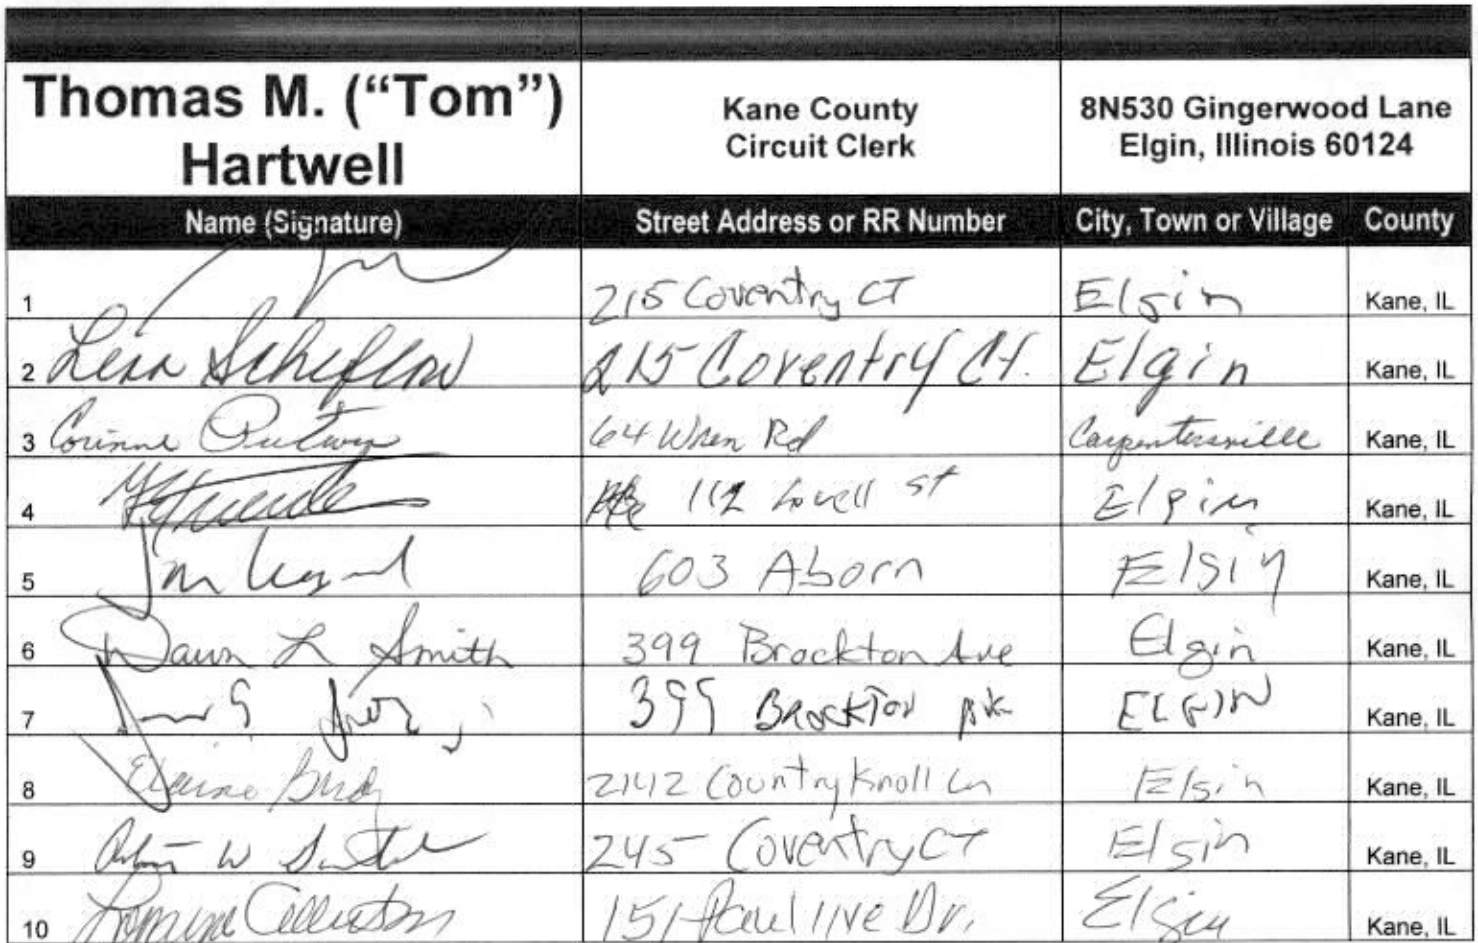 Thomas M. (“Tom”) Hartwell
Kane County Circuit Clerk
8N530 Gingerwood Lane Elgin, Illinois 60124
Name (Signature) Street Address or RR Number City, Town or Village County
1 215 Coventry CT Elgin Kane, IL
2 215 Coventry Ct. Elgin Kane, IL
3 Corinne 64 Wren Rd Carpentersville Kane, IL
4 112 Lovell St Elgin Kane, IL
5 603 Aborn Elgin Kane, IL
6 Dawn L Smith 399 Brockton Ave Elgin Kane, IL
7 399 Brockton ELGIN Kane, IL
8 Elaine 2142 Country Knoll Ln Elgin Kane, IL
9 W 245 Coventry CT Elgin Kane, IL
10 151 Pauline Dr. Elgin Kane, IL